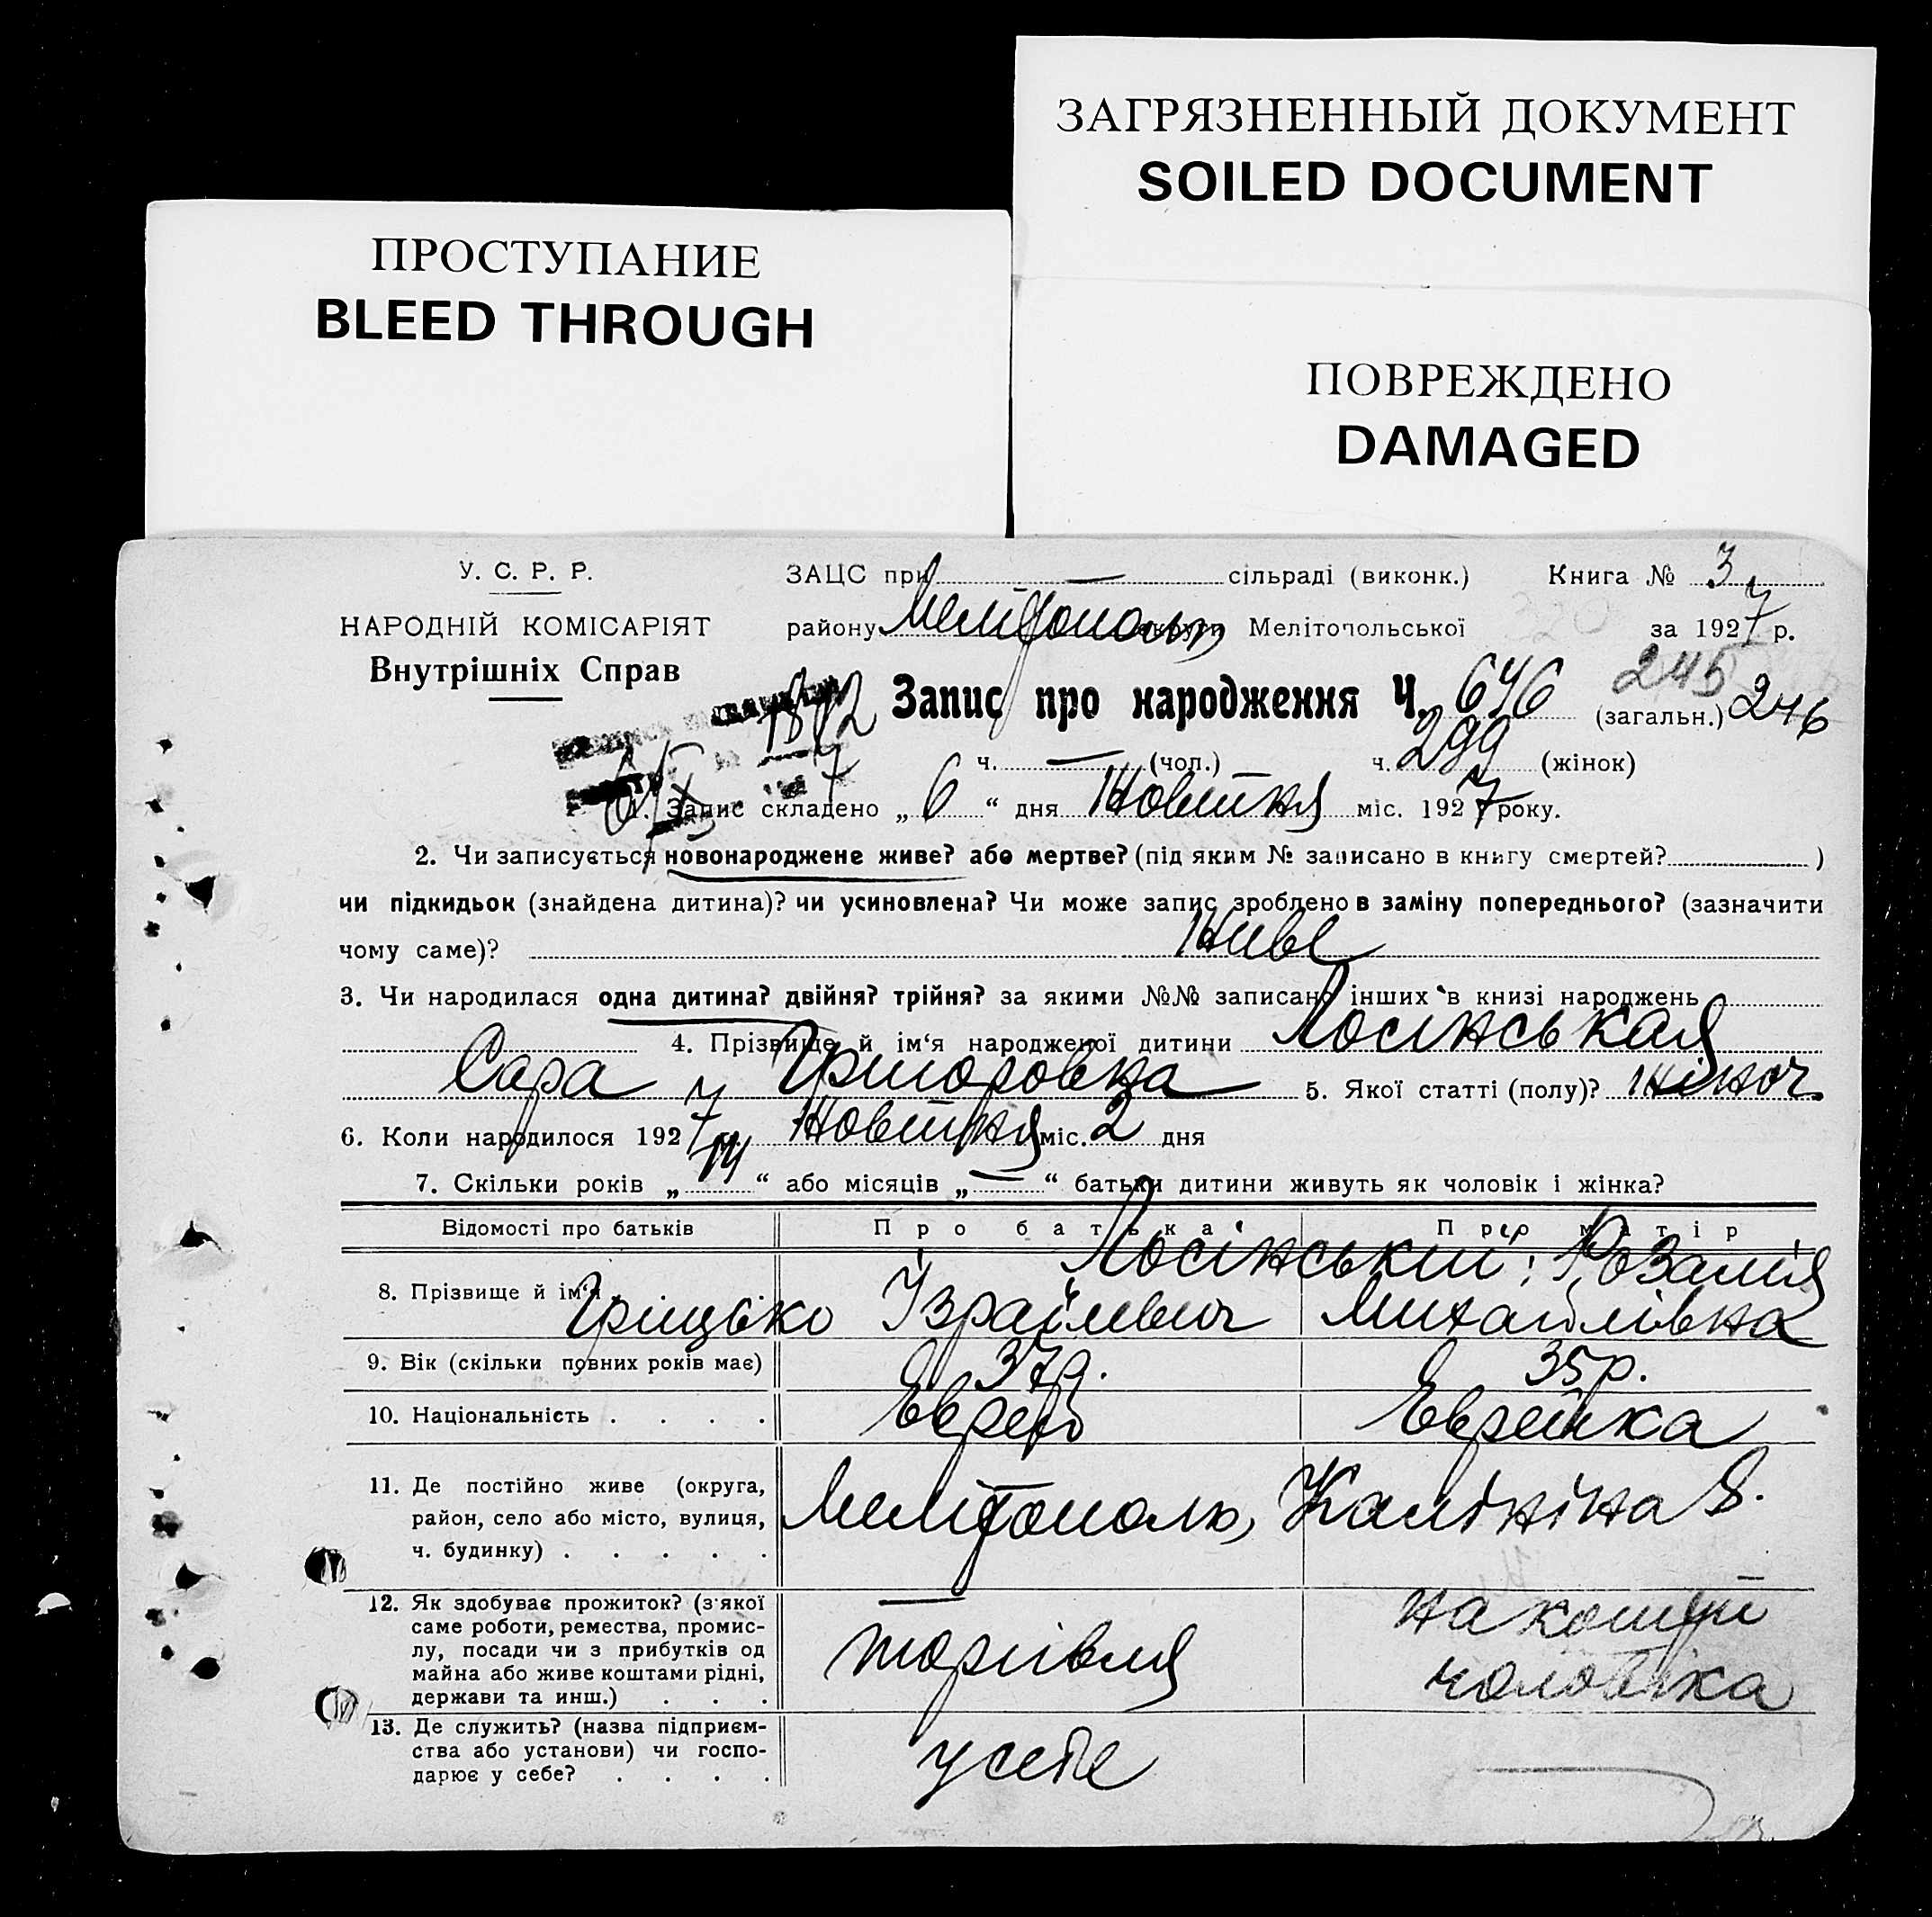 ЗАГРЯЗНЕННЫЙ ДОКУМЕНТ
SOILED DOCUMENT
ПРОСТУПАНИЕ
BLEED THROUGH
ПОВРЕЖДЕНО
DAMAGED
У. С. Р. Р.
НАРОДНІЙ КОМІСАРІЯТ
Внутрішніх Справ
ЗАЦС при — сільраді (виконк.) Книга № 3
району Мелітополь округи Мелітопольської за 1927 р.
245
Запис про народження Ч. 646 (загальн.) 246
ч. — (чол.) ч. 299 (жінок)
1. Запис складено „ 6 “ дня Жовтня міс. 1927 року.
2. Чи записується новонароджене живе? або мертве? (під яким № записано в книгу смертей? )
чи підкидьок (знайдена дитина)? чи усиновлена? Чи може запис зроблено в заміну попереднього? (зазначити
чому саме)? Живе
3. Чи народилася одна дитина? двійня? трійня? за якими №№ записано інших в книзі народжень
4. Прізвище й ім‘я народженої дитини Лосінськая
Сара Григоровна 5. Якої статті (полу)? жіноч.
6. Коли народилося 1927 р. Жовтня міс. 2 дня
7. Скільки років „ 14 “ або місяців „ — “ батьки дитини живуть як чоловік і жінка?
Відомості про батьків Про батька Про матір
8. Прізвище й ім‘я Лосінський: Розалія
Грицько Ізраїлевич Михайлівна
9. Вік (скільки повних років має) 37р. 35р.
10. Національність . . . . Еврей Еврейка
11. Де постійно живе (округа,
район, село або місто, вулиця,
ч. будинку) . . . . .
Мелітополь, Калініна 8.
12. Як здобуває прожиток? (з якої
саме роботи, ремества, промис-
лу, посади чи з прибутків од
майна або живе коштами рідні,
держави та инш.) . . .
торгівля
на кошти
чоловіка
13. Де служить? (назва підприєм-
ства або установи) чи госпо-
дарює у себе? . . . .
у себе